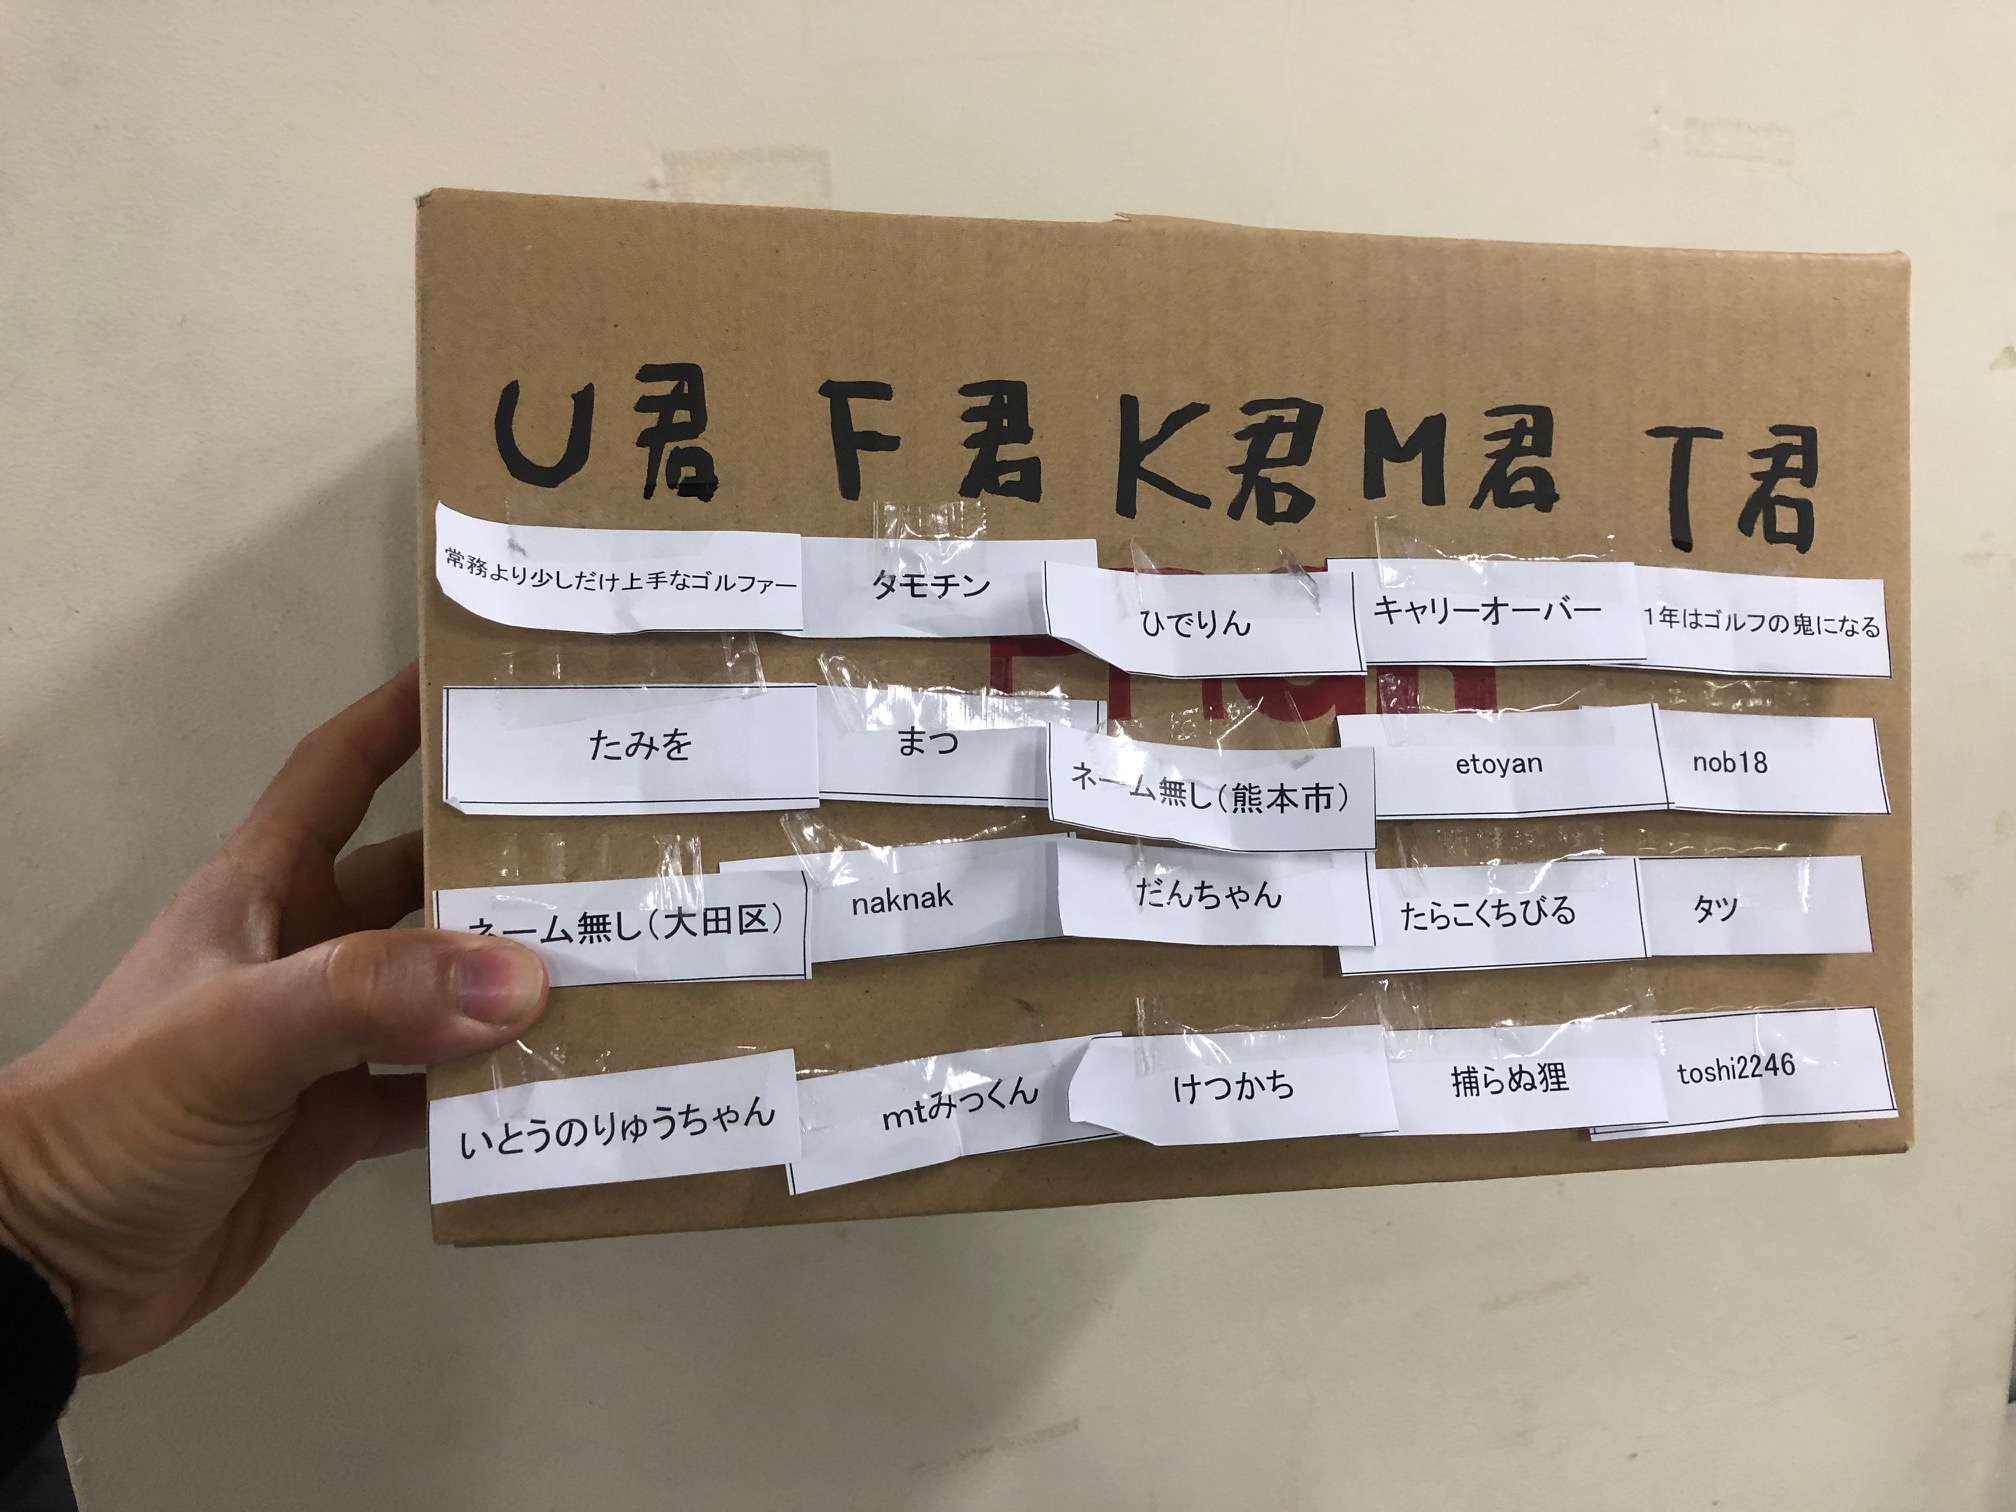 U君 F君 K君 M君 T君
常務より少しだけ上手なゴルファー タモチン ひでりん キャリーオーバー 1年はゴルフの鬼になる
たみを まつ ネーム無し(熊本市) etoyan nob18
ネーム無し(大田区) naknak だんちゃん たらこくちびる タツ
いとうのりゅうちゃん mtみっくん けつかち 捕らぬ狸 toshi2246